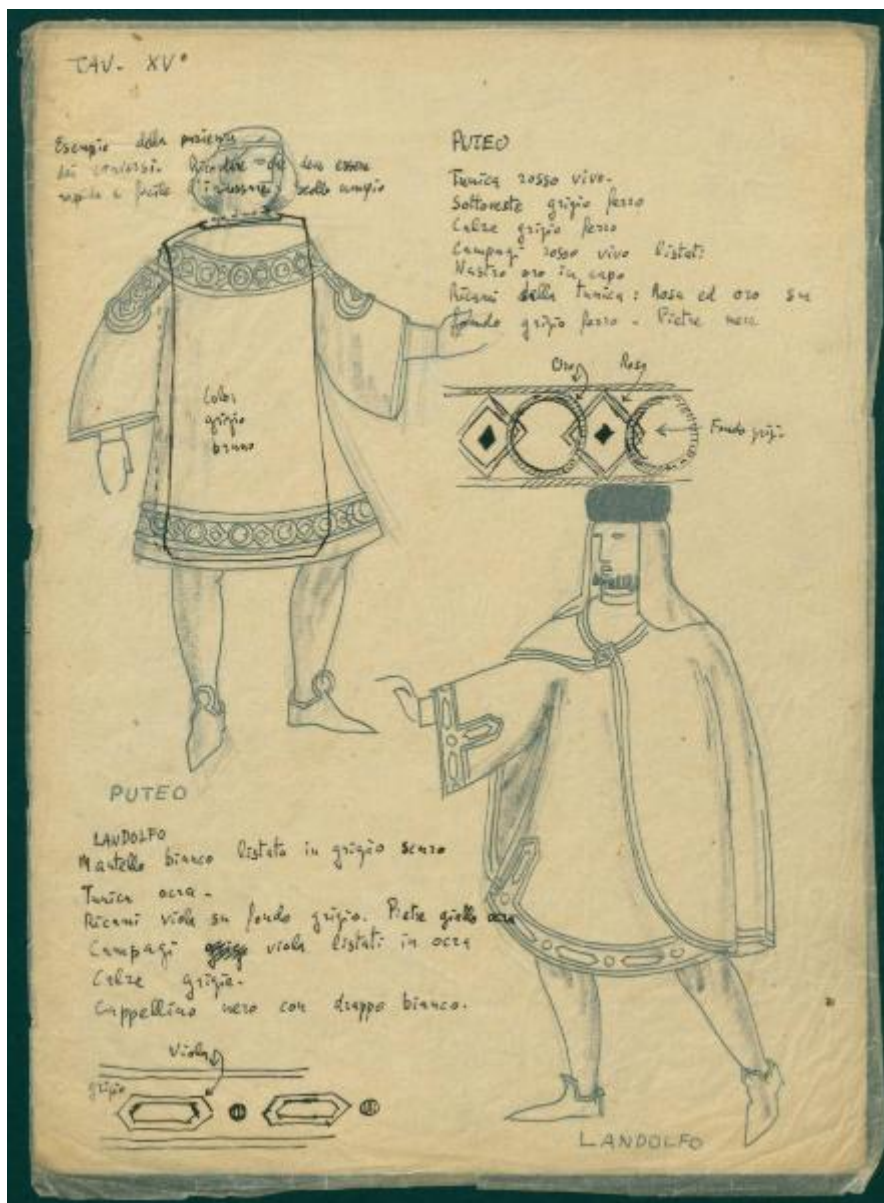 TAV. XV°
Esempio della pazienza
dei conversi. Ricordare che deve essere
rapida e facile d'indossare: scollo ampio
PUTEO
Tunica rosso vivo.
Sottoveste grigio ferro
Calze grigio ferro
Campagi rosso vivo listati
Nastro oro in capo
Ricami della tunica: Rosa ed oro su
fondo grigio ferro - Pietre nere
Oro
Rosa
Fondo grigio
grigio
bruno
PUTEO
LANDOLFO
Mantello bianco listato in grigio scuro
Tunica ocra -
Ricami viola su fondo grigio. Pietre giallo ocra
Campagi viola listati in ocra
Calze grigie.
Cappellino nero con drappo bianco.
Viola
grigio
LANDOLFO